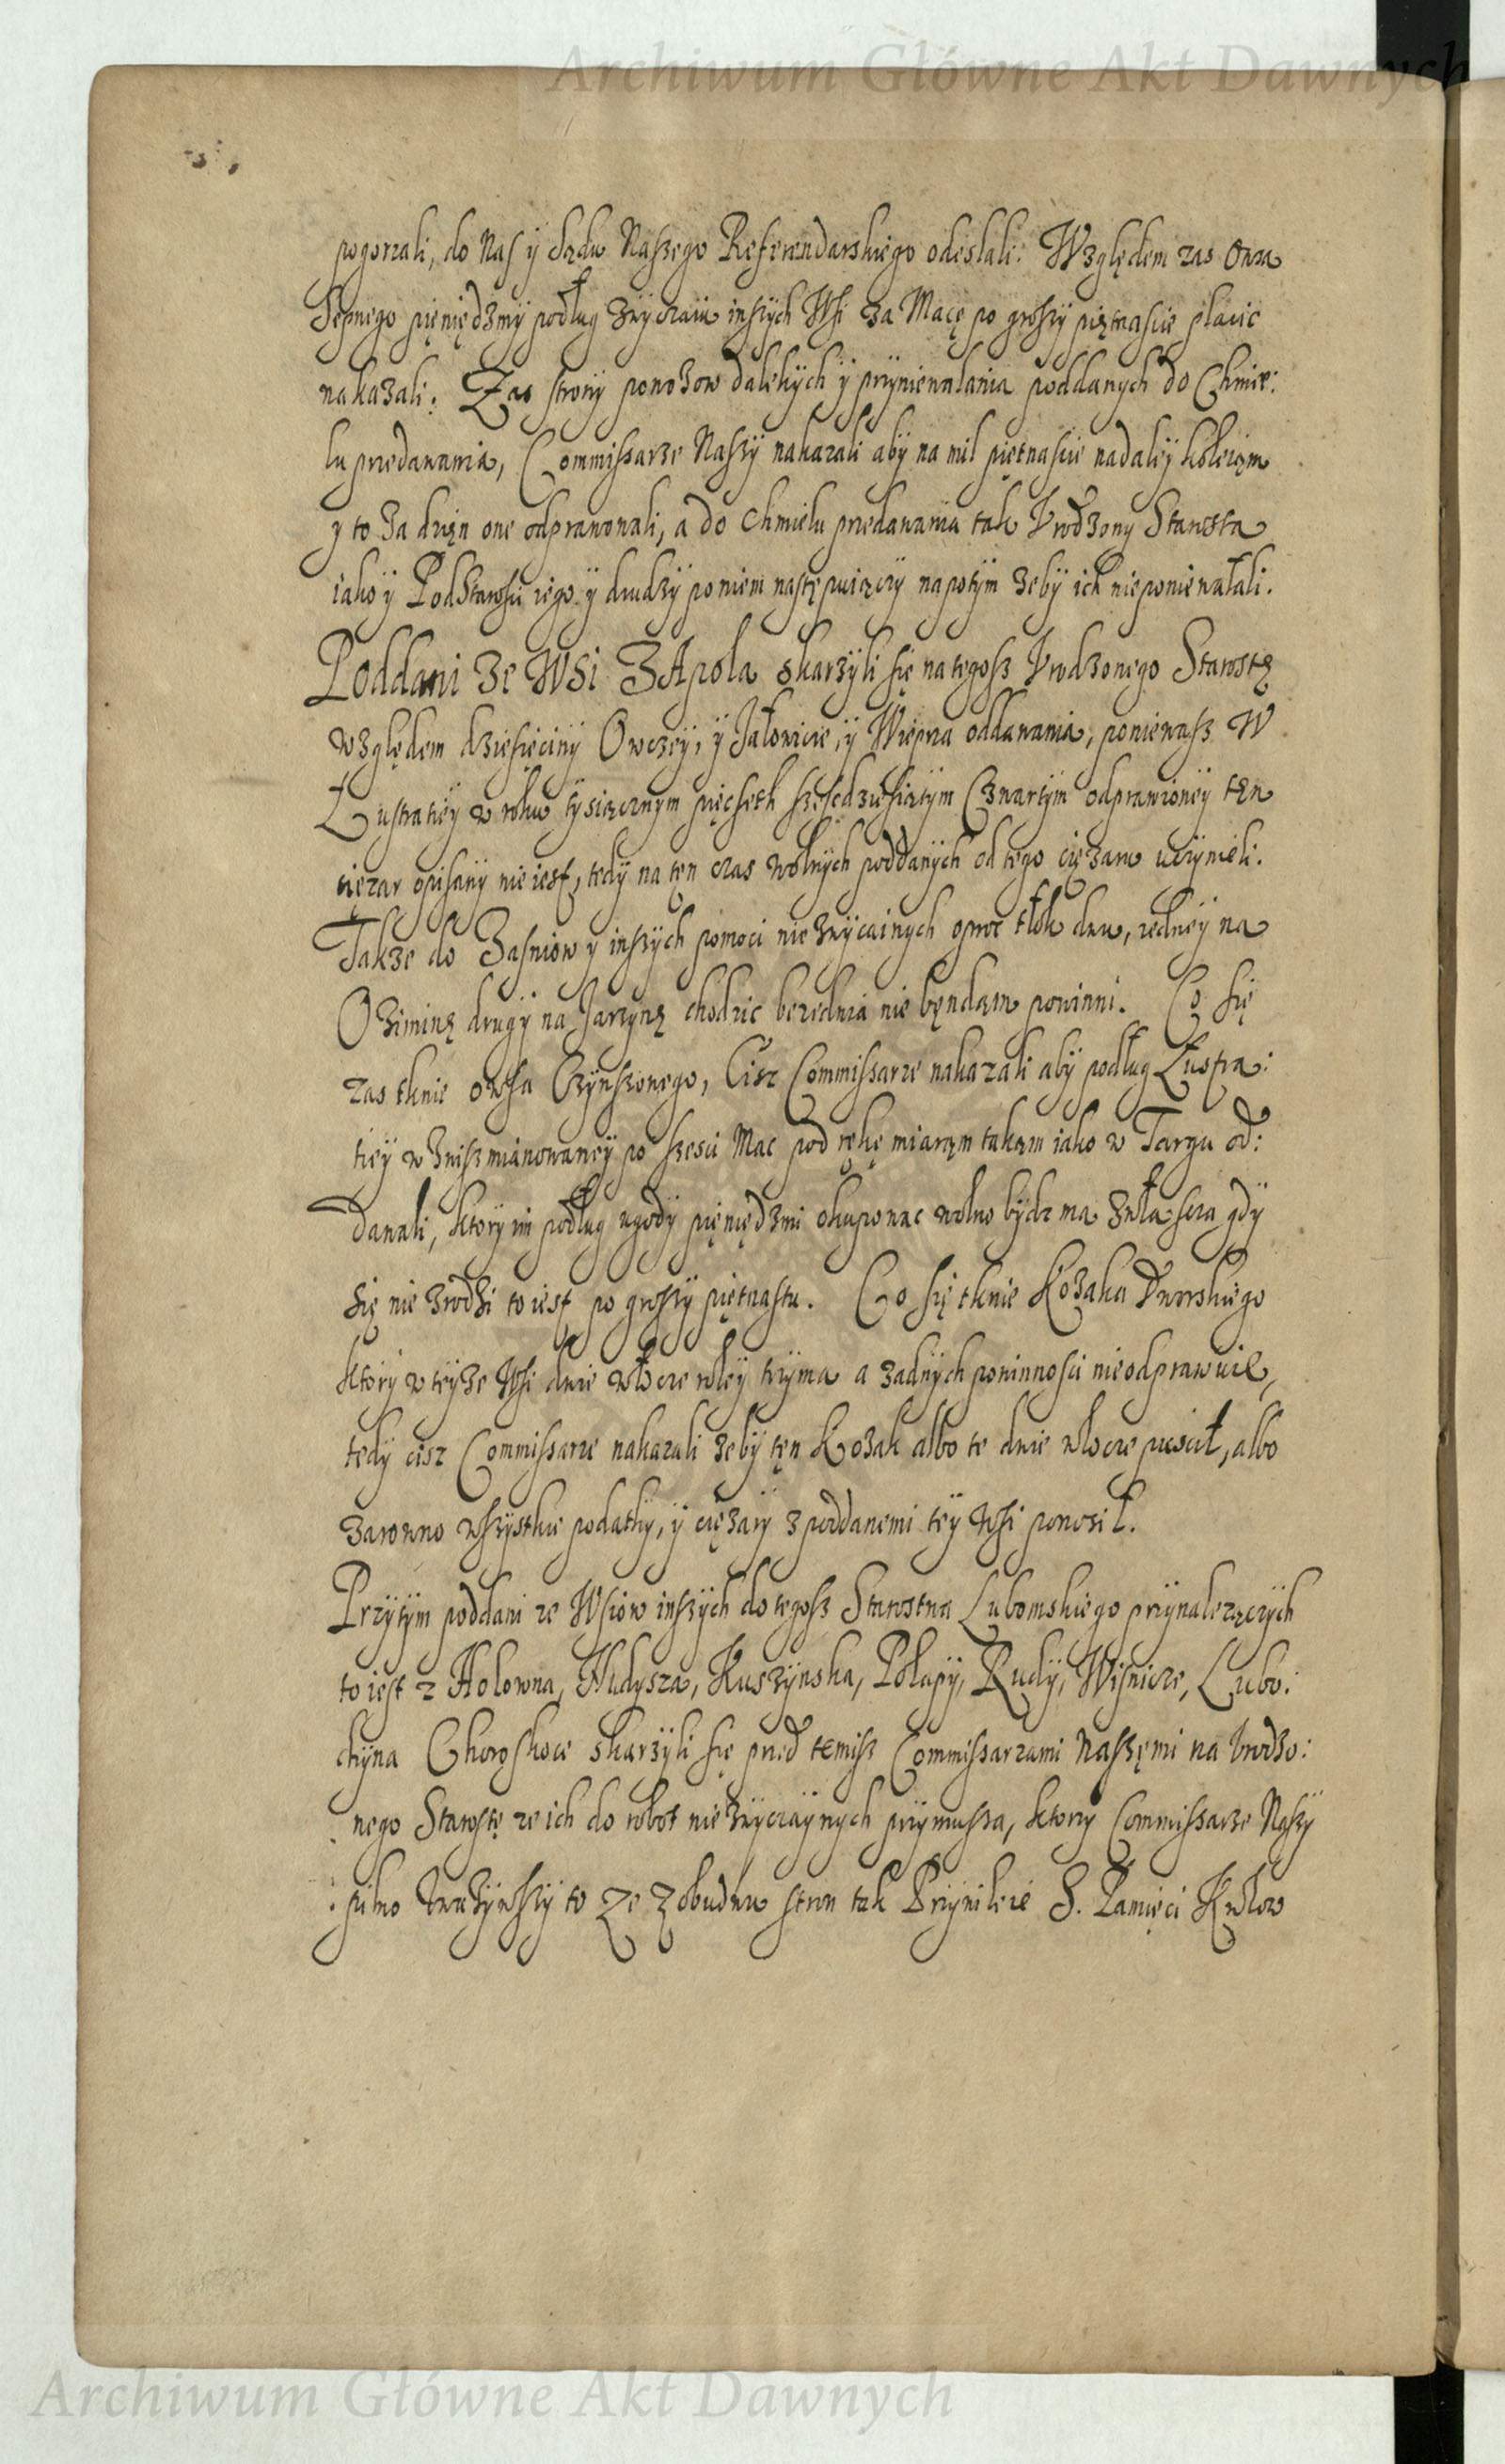 Archiwum Główne Akt Dawnych
pogorzali, do Nas ÿ Sądu Naszego Referendarskiego odesłali: Względem zas Owsa
Sepnego pięniędzmÿ podług zwÿczaiu inszÿch Wsi za Macę po groszÿ piętnascie płacic
nakazali: Zas stronÿ powozow dalekÿch ÿ prziniewalania poddanych do Chmie:
lu przedawania, Commissarze Naszÿ nakazali abÿ na mil piętnascie nadaliÿ koleiąm
y to za dzięn one odprawowali, a do Chmielu przedawania tak Vrodzony Starosta
iako ÿ PodStarosci iego ÿ drudzÿ po niem następuiączÿ napotÿm zebÿ ich nieponiewałali.
Poddani Ze WSi ZApola skarzÿli się na tegosz Vrodzonego Starostę
względem dziesięcinÿ Owczeÿ, ÿ Jałowicie, ÿ Wieprza oddawania, poniewasz W
Lustratiÿ w roku tÿsiącznym pięcseth szescdziesiątÿm Czwartÿm odprawioneÿ tęn
ciezar opisanÿ nie iest, tedÿ na tęn czas wolnÿch poddanÿch od tego ciężaru uczÿnieli.
Takze do Zasniow y inszÿch pomoci nie zwÿcainych oproc tłok dwu, iedneÿ na
Oziminę drugÿ na Jarzÿnę chodzic bezednia nie bęndąm powinni. Co się
zas tknie owsa Czÿnszowego, Cisz Commissarze nakazali abÿ podług Lustra:
tieÿ w zwisz mianowaneÿ po szesci Mac pod rękę miarąm takąm iako w Targu od:
dawali, ktorÿ im podług ugodÿ pięniędzmi okupowac wolno bÿdz ma zwłascza gdÿ
się nie zrodzi to iest po groszÿ piętnastu. Co się tknie Kozaka Dworskiego
ktorÿ w teÿze Wsi dwie włocze roleÿ trzÿma a zadnÿch powinnosci nieodprawuie,
tedÿ cisz Commissarze nakazali zebÿ tęn Kozak albo te dwie włocze puscił, albo
zarowno wszÿstkie podatkÿ, ÿ ciężarÿ z poddanemi teÿ Wsi ponosił.
Przÿtÿm poddani ze Wsiow inszÿch do tegosz Starostwa Lubomskiego przÿnalezączÿch
to iest z Holowna, Hudysza, Kuszÿnska, Połapÿ, Rudÿ, Wisnicze, Lubo:
chÿna Choroskoce skarzÿli się przed temisz Commissarzami Naszęmi na Vrodzo:
nego Starostę ze ich do robot niezwÿczaÿnych przÿmusza, ktorzy Commissarze Naszÿ
pilno Vwazÿwszÿ to Ze Z obudwu stron tak Prziwileie S. Pamięci Krolow
Archiwum Główne Akt Dawnych